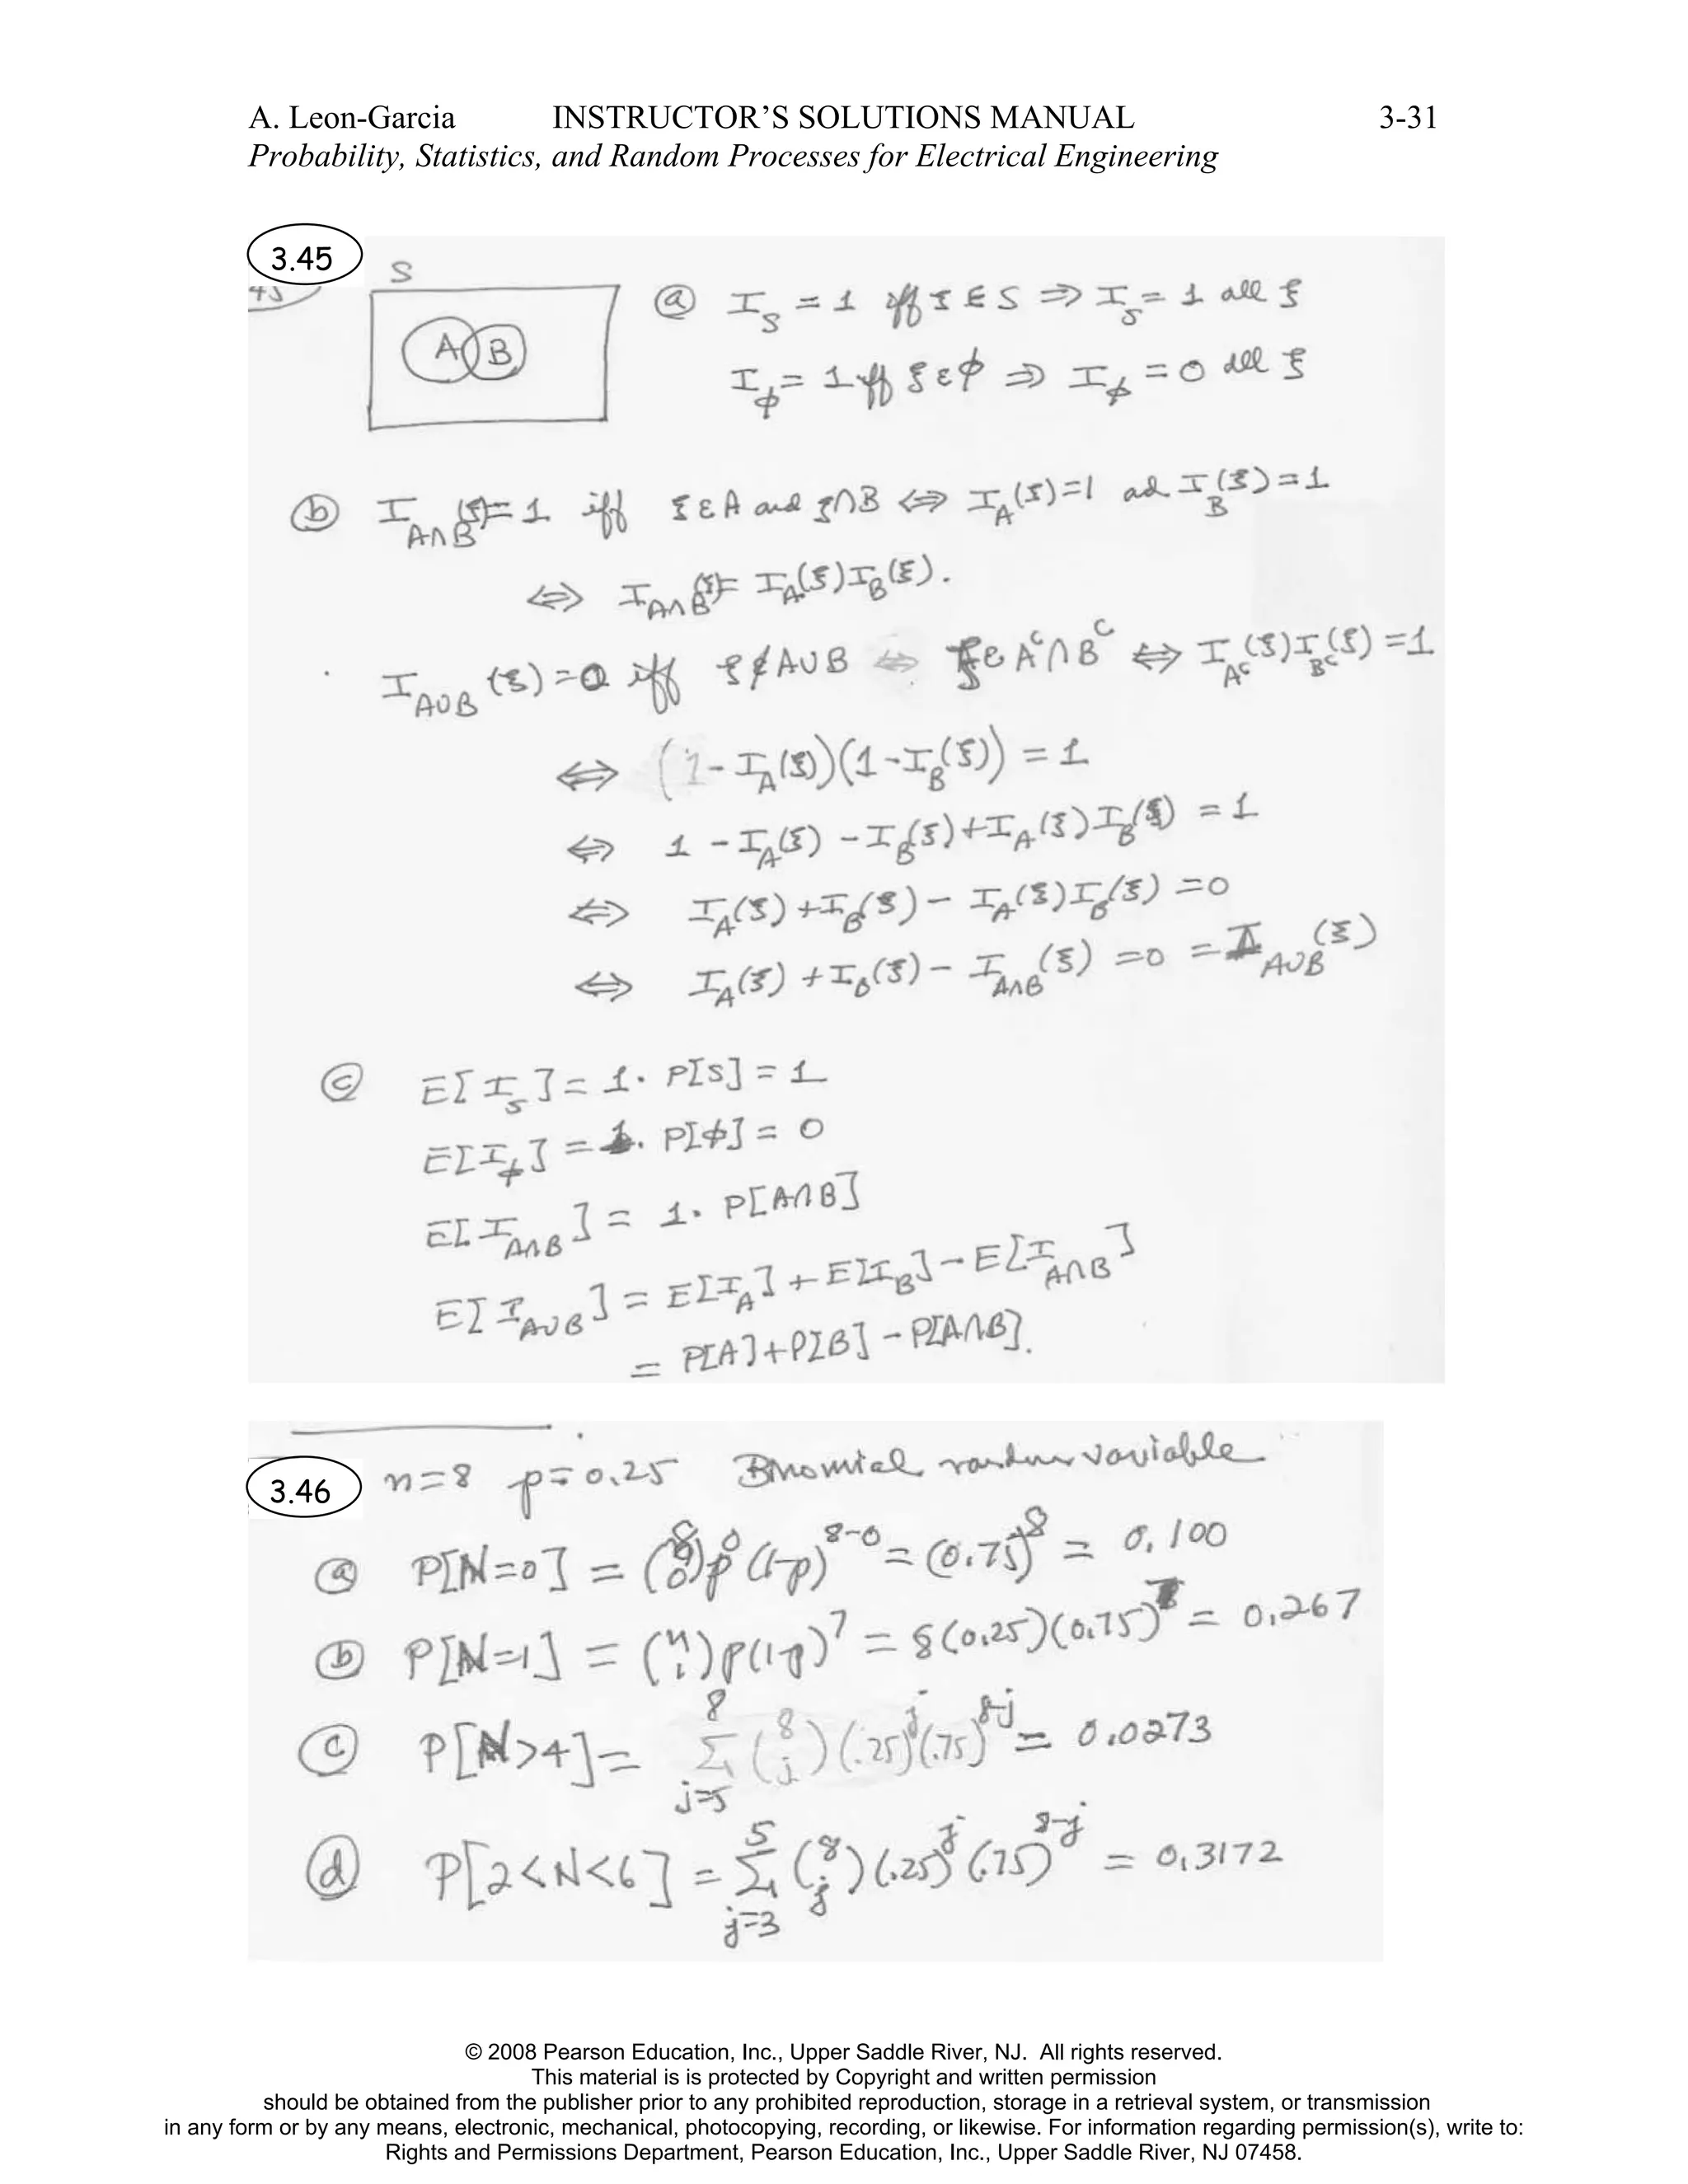 A. Leon-Garcia INSTRUCTOR'S SOLUTIONS MANUAL 3-31
Probability, Statistics, and Random Processes for Electrical Engineering
3.45
S
A B
ⓐ I_S = 1 iff ξ ∈ S ⇒ I_S = 1 all ξ
I_ϕ = 1 iff ξ ε ϕ ⇒ I_ϕ = 0 all ξ
ⓑ I_{A∩B}(ξ) = 1 iff ξ ε A and ξ ∩ B ⇔ I_A(ξ) = 1 ad I_B(ξ) = 1
⇔ I_{A∩B}(ξ) = I_A(ξ) I_B(ξ).
I_{A∪B}(ξ) = 0 iff ξ ∉ A∪B ⇔ ξ ε A^c ∩ B^c ⇔ I_{A^c}(ξ) I_{B^c}(ξ) = 1
⇔ (1 - I_A(ξ))(1 - I_B(ξ)) = 1
⇔ 1 - I_A(ξ) - I_B(ξ) + I_A(ξ) I_B(ξ) = 1
⇔ I_A(ξ) + I_B(ξ) - I_A(ξ) I_B(ξ) = 0
⇔ I_A(ξ) + I_B(ξ) - I_{A∩B}(ξ) = 0 = I_{A∪B}(ξ)
ⓒ E[I_S] = 1 · P[S] = 1
E[I_ϕ] = 1 · P[ϕ] = 0
E[I_{A∩B}] = 1 · P[A∩B]
E[I_{A∪B}] = E[I_A] + E[I_B] - E[I_{A∩B}]
= P[A] + P[B] - P[A∩B].
3.46
n = 8 p = 0.25 Binomial random variable
ⓐ P[N=0] = (8 0) p^0 (1-p)^{8-0} = (0.75)^8 = 0.100
ⓑ P[N=1] = (n 1) p(1-p)^7 = 8(0.25)(0.75)^7 = 0.267
ⓒ P[N>4] = Σ_{j=5}^{8} (8 j) (.25)^j (.75)^{8-j} = 0.0273
ⓓ P[2<N<6] = Σ_{j=3}^{5} (8 j) (.25)^j (.75)^{8-j} = 0.3172
© 2008 Pearson Education, Inc., Upper Saddle River, NJ. All rights reserved.
This material is is protected by Copyright and written permission
should be obtained from the publisher prior to any prohibited reproduction, storage in a retrieval system, or transmission
in any form or by any means, electronic, mechanical, photocopying, recording, or likewise. For information regarding permission(s), write to:
Rights and Permissions Department, Pearson Education, Inc., Upper Saddle River, NJ 07458.